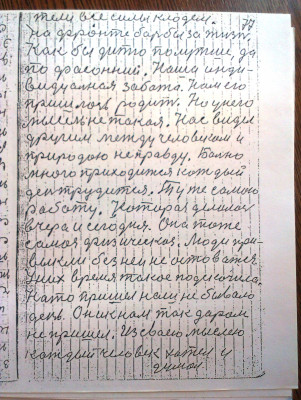 тели все силы кладем. 79
на фронте барбы за жизнь.
Как бы дитю получше, да
по фасонний. Наша инди-
видуалная забота. Нам его
пришлось родить. Но у него
мысль не такая. Нас видел
другим между человеком и
природою неправду. Болно
много приходится каждый
день трудится. Ту же самою
работу. Которая делалас
вчера и сегодня. Она тоже
самая физическая. Люди при-
выкли без ней не оставатся.
У них время такое подскочило.
К ато пришел нам не бывало
день. Он к нам так даром
не пришел. Из своею мыслею
каждый человек хотел и